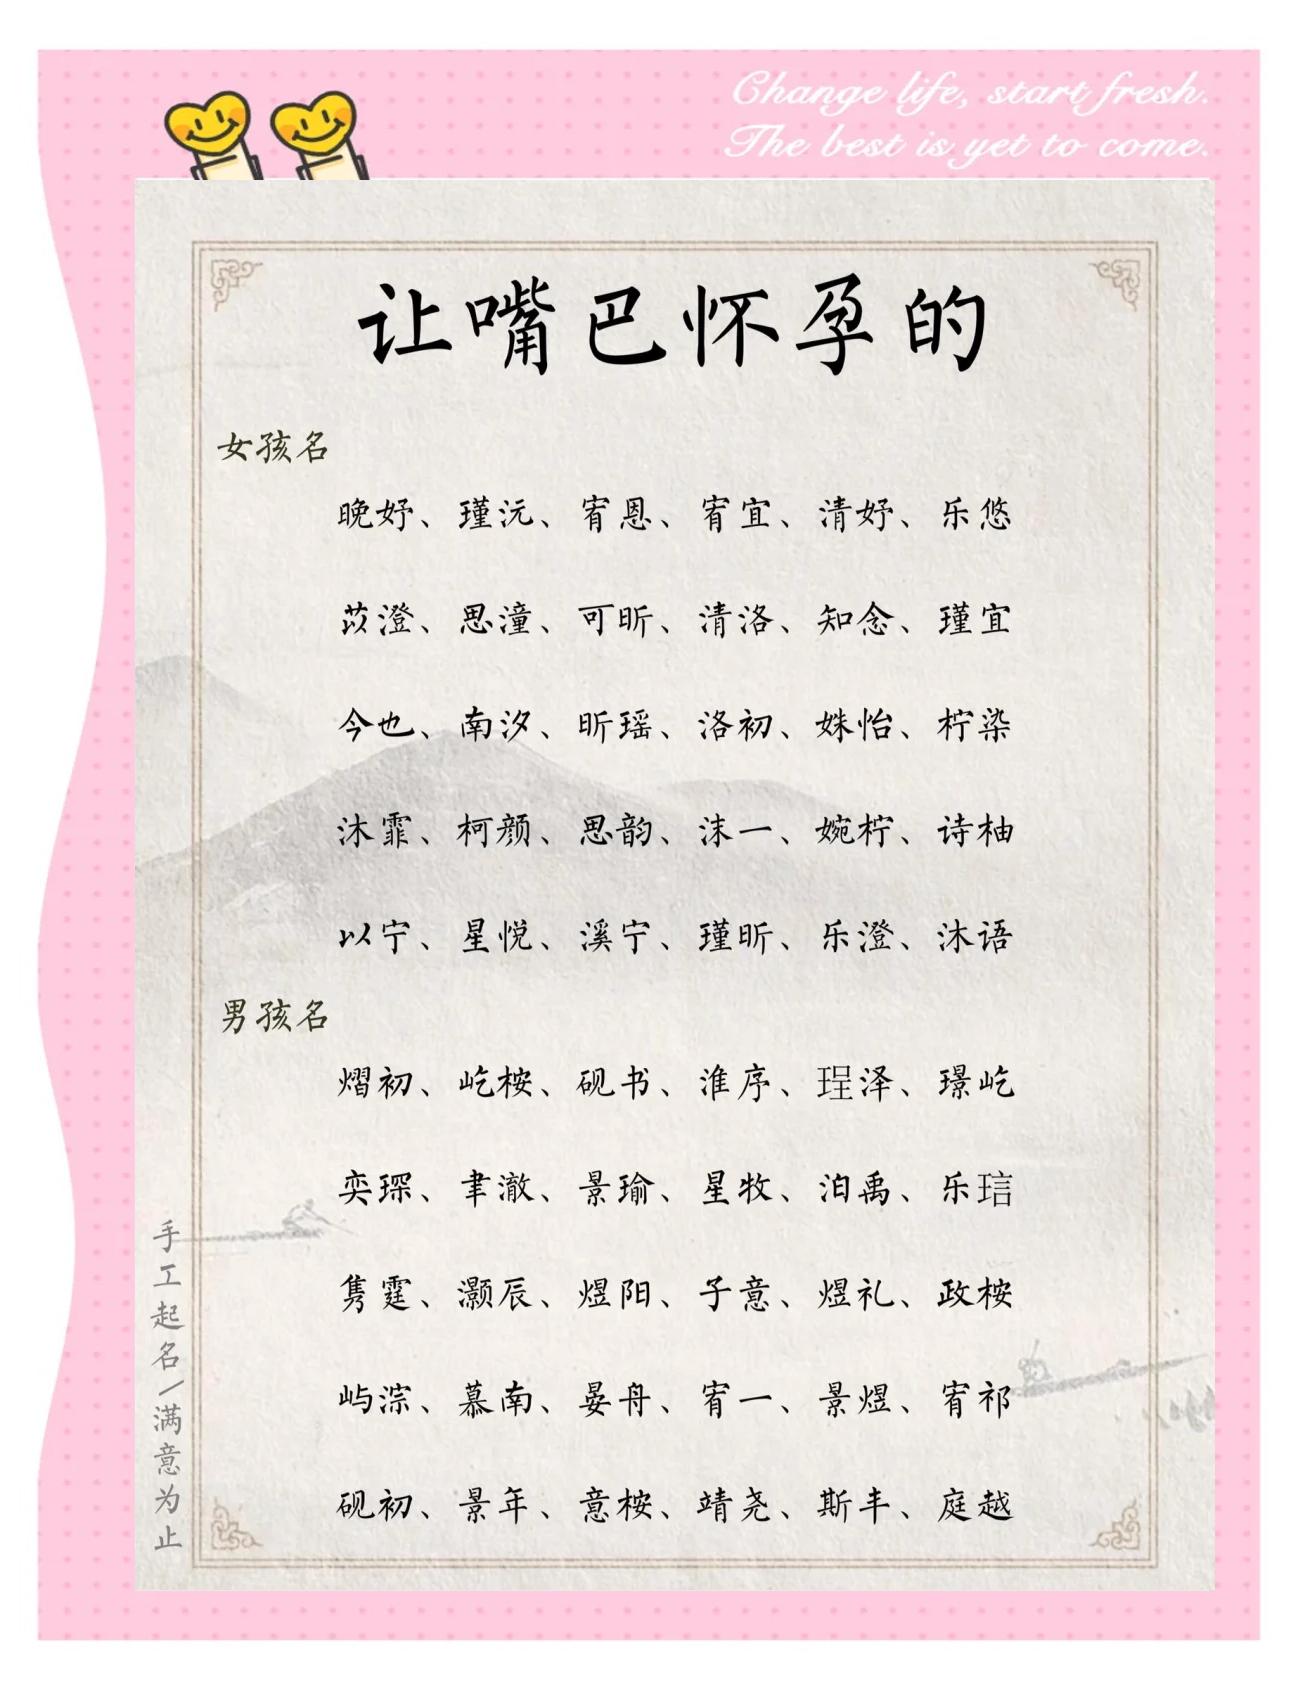 Change life, start fresh.
The best is yet to come.
让嘴巴怀孕的
女孩名
晚妤、瑾沅、宥恩、宥宜、清妤、乐悠
苡澄、思潼、可昕、清洛、知念、瑾宜
今也、南汐、昕瑶、洛初、姝怡、柠染
沐霏、柯颜、思韵、沫一、婉柠、诗柚
以宁、星悦、溪宁、瑾昕、乐澄、沐语
男孩名
熠初、屹桉、砚书、淮序、珵泽、璟屹
奕琛、聿澈、景瑜、星牧、泊禹、乐琂
隽霆、灏辰、煜阳、子意、煜礼、政桉
屿淙、慕南、晏舟、宥一、景煜、宥祁
砚初、景年、意桉、靖尧、斯丰、庭越
手工起名/满意为止